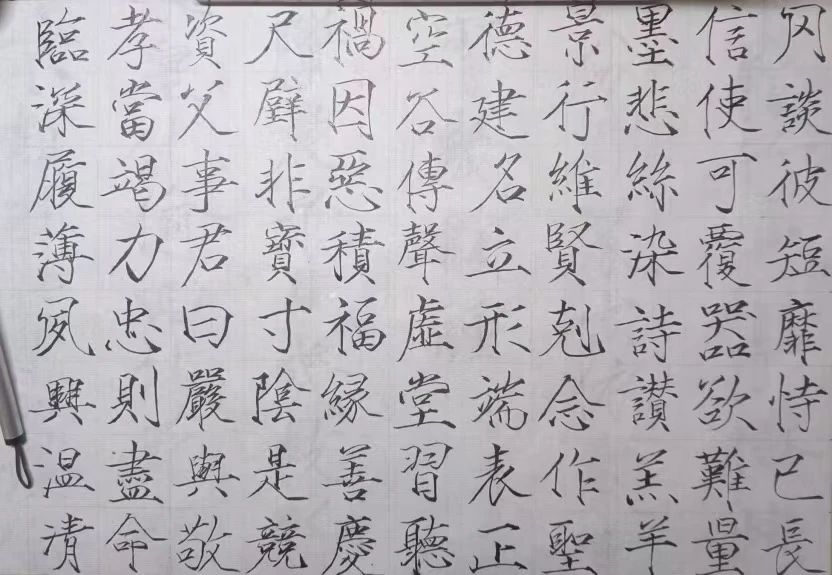 罔談彼短靡恃己長
信使可覆器欲難量
墨悲絲染詩讃羔羊
景行維賢剋念作聖
德建名立形端表正
空谷傳聲虛堂習聽
禍因惡積福緣善慶
尺璧非寶寸陰是競
資父事君曰嚴與敬
孝當竭力忠則盡命
臨深履薄夙興温清